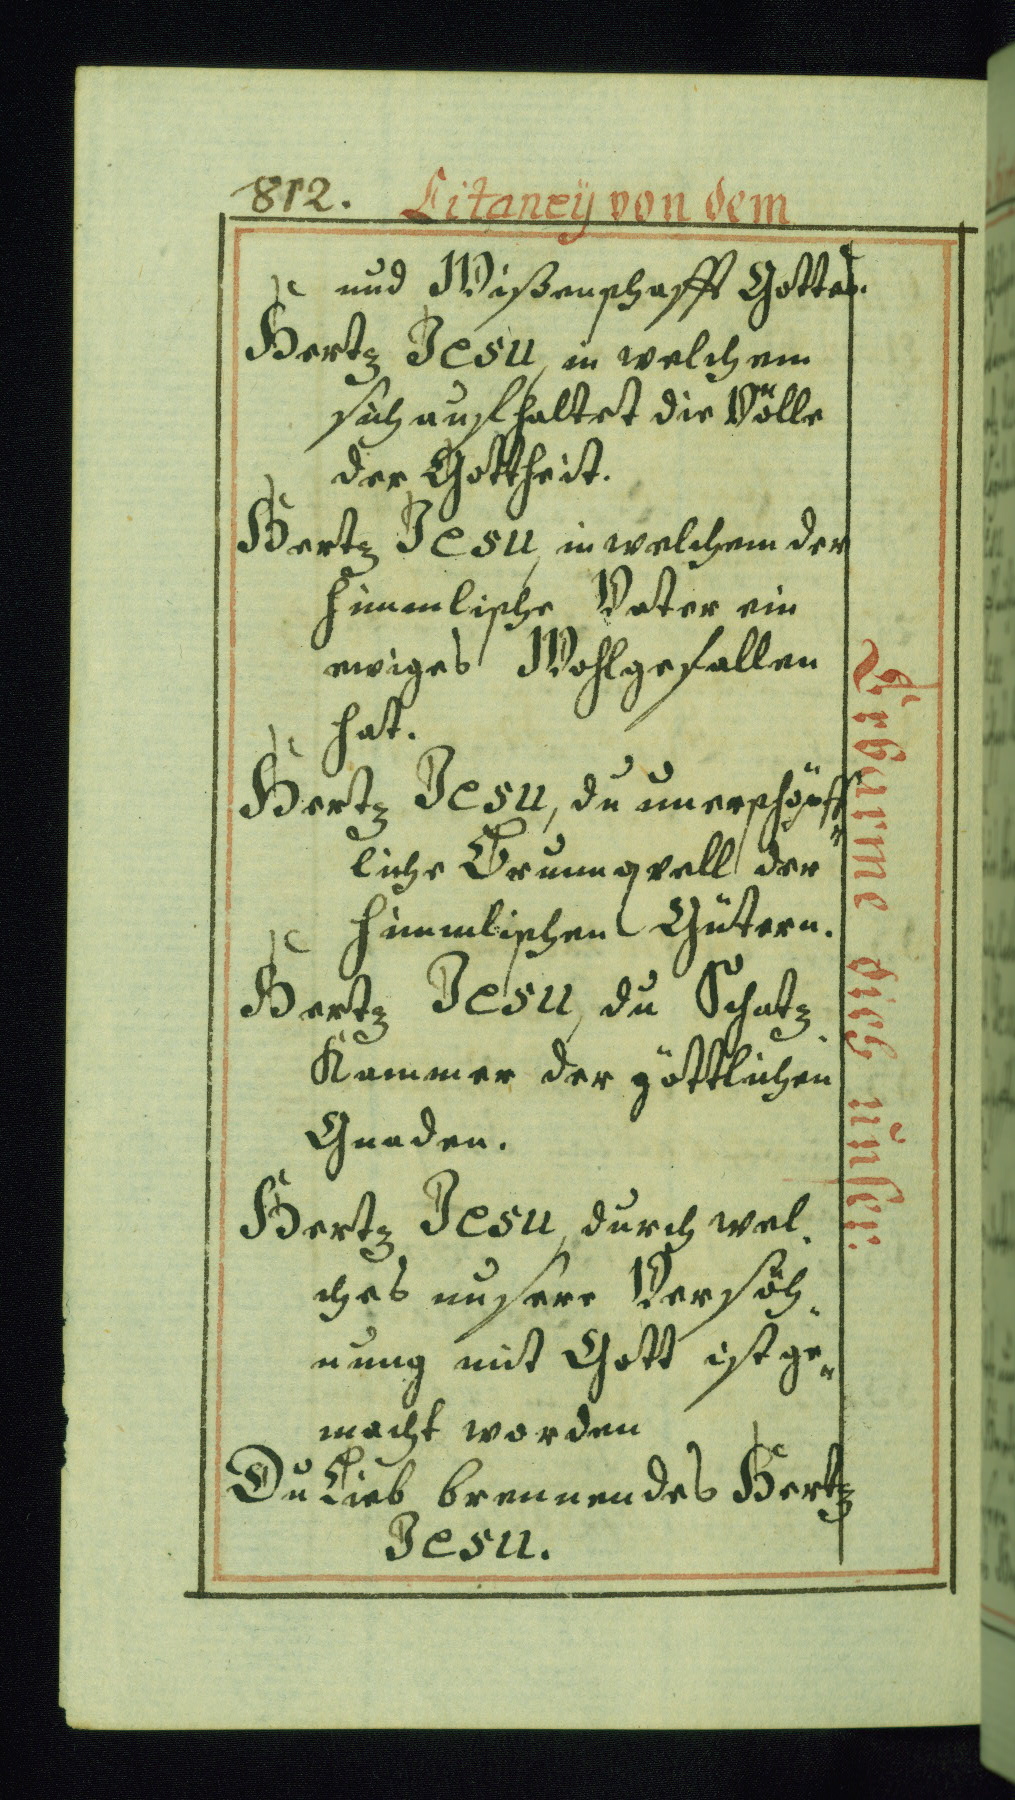 812. Litaney von dem
und Wißenschafft Gottes.
Hertz Jesu, in welchem
sich aufhaltet die Völle
der Gottheit.
Hertz Jesu, in welchem der
himmlische Vater ein
ewiges Wohlgefallen
hat.
Hertz Jesu, du unerschöpff„
liche Brunnqvell der
himmlischen Gütern.
Hertz Jesu, du Schatz
Kammer der göttlichen
Gnaden.
Hertz Jesu, durch wel„
ches unsere Versöh„
nung mit Gott ist ge„
macht worden
Du Lieb brennendes Hertz
Jesu.
Erbarme dich unser.